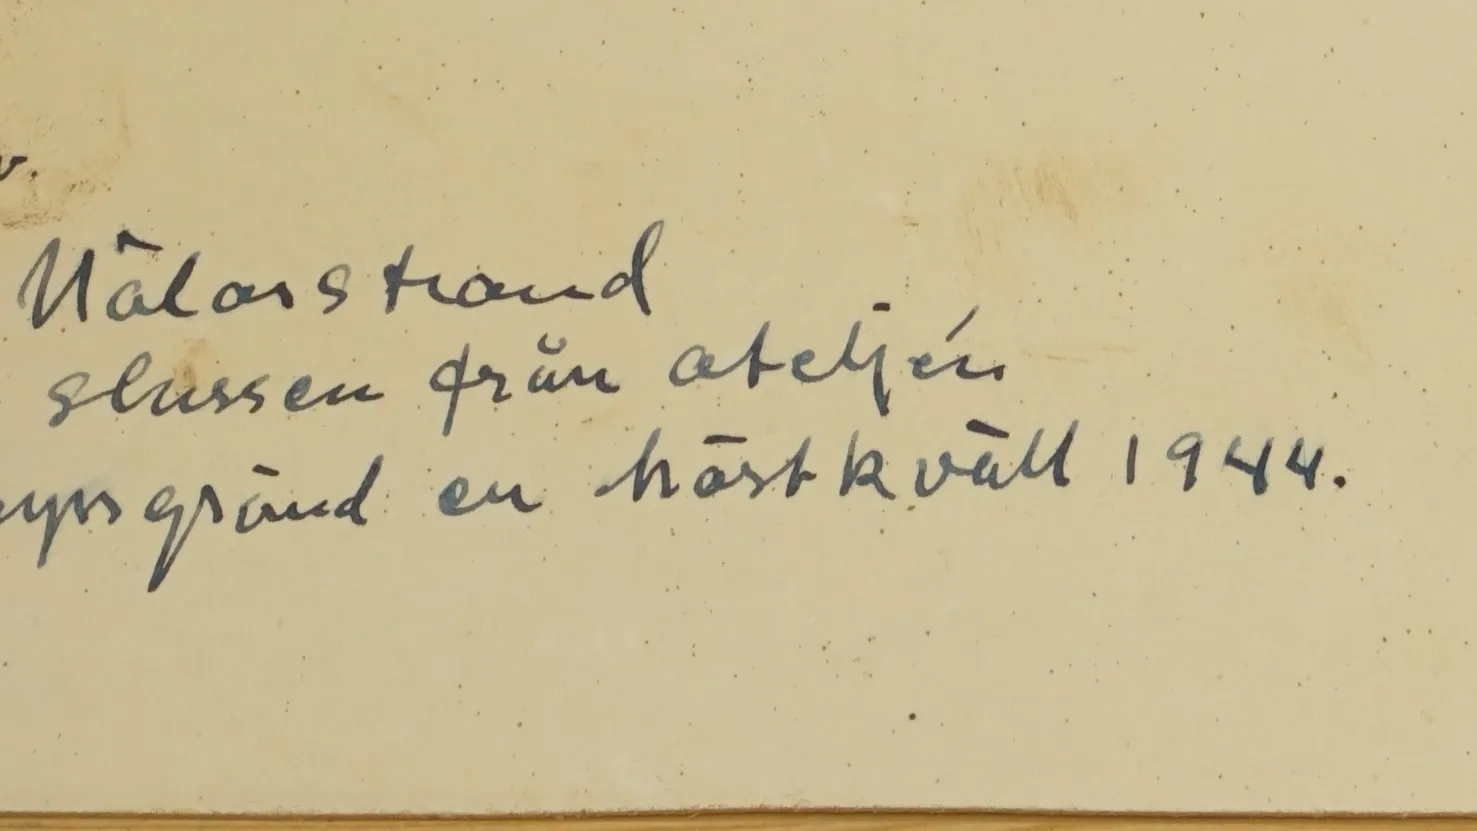 Mälarstrand
slussen från ateljén
en höstkväll 1944.